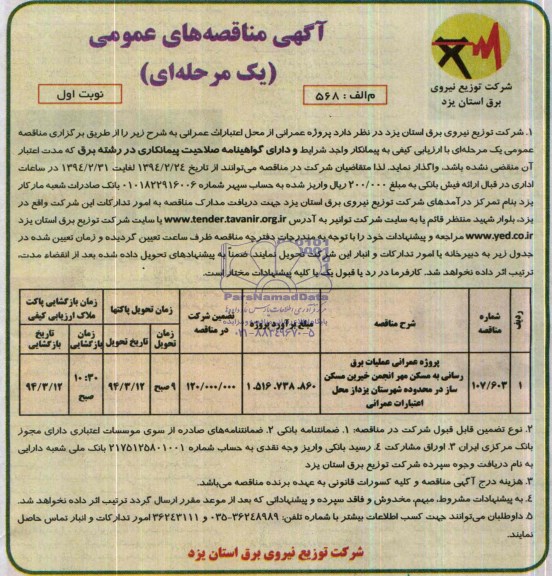 آگهی مناقصه‌های عمومی
(یک مرحله‌ای)
شرکت توزیع نیروی
برق استان یزد
م‌الف : ۵۶۸
نوبت اول
۱. شرکت توزیع نیروی برق استان یزد در نظر دارد پروژه عمرانی از محل اعتبارات عمرانی به شرح زیر را از طریق برگزاری مناقصه
عمومی یک مرحله‌ای با ارزیابی کیفی به پیمانکار واجد شرایط و دارای گواهینامه صلاحیت پیمانکاری در رشته برق که مدت اعتبار
آن منقضی نشده باشد، واگذار نماید. لذا متقاضیان شرکت در مناقصه می‌توانند از تاریخ ۱۳۹۴/۲/۲۴ لغایت ۱۳۹۴/۲/۳۱ در ساعات
اداری در قبال ارائه فیش بانکی به مبلغ ۲۰۰/۰۰۰ ریال واریز شده به حساب سپهر شماره ۰۱۰۱۸۲۲۹۱۶۰۰۶ بانک صادرات شعبه مارکار
یزد بنام تمرکز درآمدهای شرکت توزیع نیروی برق استان یزد جهت دریافت مدارک مناقصه به امور تدارکات این شرکت واقع در
یزد، بلوار شهید منتظر قائم یا به سایت شرکت توانیر به آدرس www.tender.tavanir.org.ir یا سایت شرکت توزیع برق استان یزد
www.yed.co.ir مراجعه و پیشنهادات خود را با توجه به مندرجات دفترچه مناقصه ظرف ساعت تعیین گردیده و زمان تعیین شده در
جدول زیر به دبیرخانه یا امور تدارکات و انبار این شرکت تحویل نمایند. ضمناً به پیشنهادهای تحویل داده شده بعد از انقضاء مدت،
ترتیب اثر داده نخواهد شد. کارفرما در رد یا قبول یک یا کلیه پیشنهادات مختار است.
ParsNamadData
۰۲۱-۸۸۳۴۹۶۷۰-۵
ردیف
شماره مناقصه
شرح مناقصه
مبلغ برآورد پروژه
تضمین شرکت در مناقصه
زمان تحویل پاکتها
زمان بازگشایی پاکت ملاک ارزیابی کیفی
زمان تحویل
تاریخ تحویل
زمان بازگشایی
تاریخ بازگشایی
۱
۱۰۷/۶۰۳
پروژه عمرانی عملیات برق
رسانی به مسکن مهر انجمن خیرین مسکن
ساز در محدوده شهرستان یزد از محل
اعتبارات عمرانی
۱.۵۱۶.۷۳۸.۸۶۰
۱۲۰/۰۰۰/۰۰۰
۹ صبح
۹۴/۳/۱۲
۱۰:۳۰ صبح
۹۴/۳/۱۲
۲. نوع تضمین قابل قبول شرکت در مناقصه: ۱. ضمانتنامه بانکی ۲. ضمانتنامه‌های صادره از سوی موسسات اعتباری دارای مجوز
بانک مرکزی ایران ۳. اوراق مشارکت ۴. رسید بانکی واریز وجه نقدی به حساب شماره ۲۱۷۵۱۲۵۸۰۱۰۰۱ بانک ملی شعبه دارایی
به نام دریافت وجوه سپرده شرکت توزیع برق استان یزد
۳. هزینه درج آگهی مناقصه و کلیه کسورات قانونی به عهده برنده مناقصه می‌باشد.
۴. به پیشنهادات مشروط، مبهم، مخدوش و فاقد سپرده و پیشنهاداتی که بعد از موعد مقرر ارسال گردد ترتیب اثر داده نخواهد شد.
۵. داوطلبان می‌توانند جهت کسب اطلاعات بیشتر با شماره تلفن: ۳۶۲۴۸۹۸۹-۰۳۵ و ۳۶۲۴۳۱۱۱ امور تدارکات و انبار تماس حاصل
نمایند.
شرکت توزیع نیروی برق استان یزد